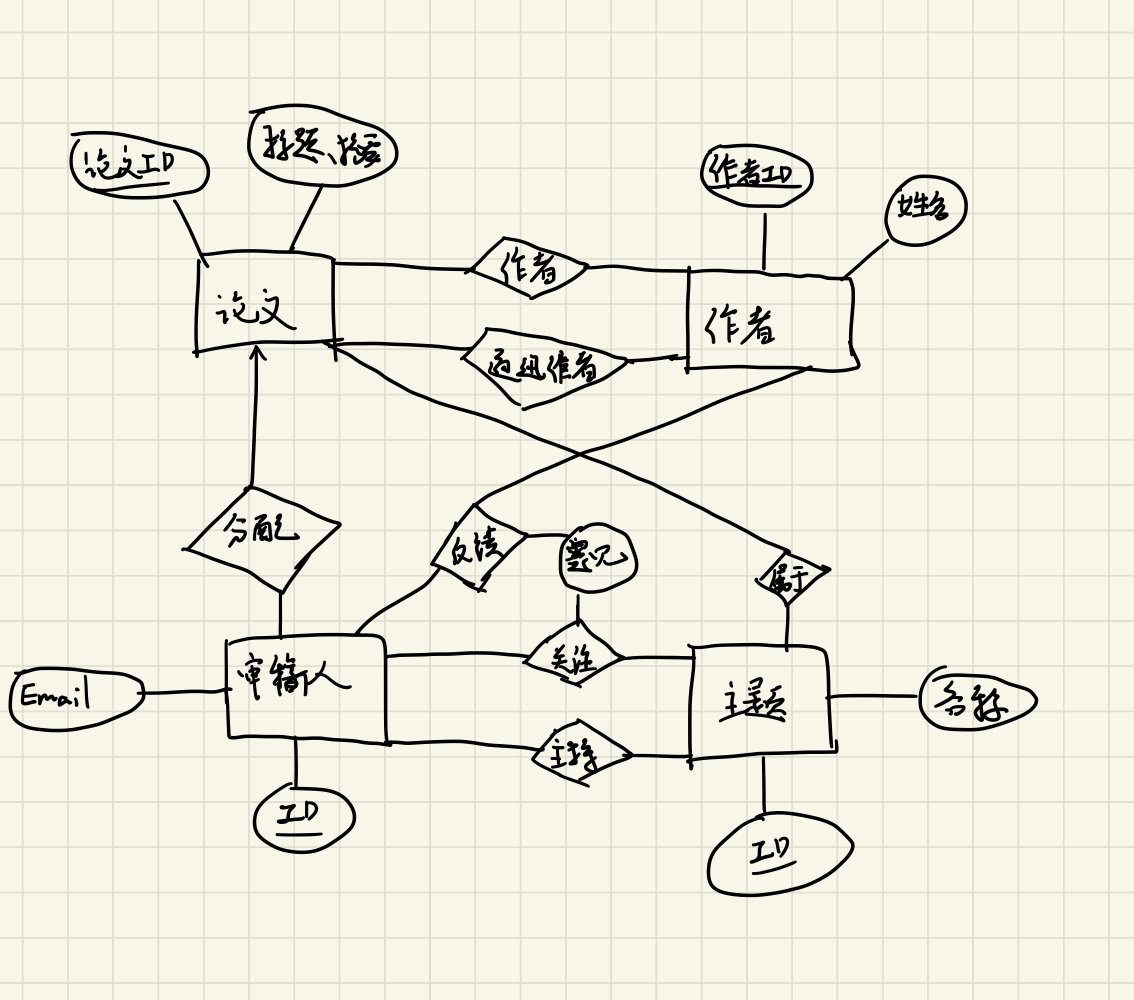 论文ID
标题、摘要
作者ID
姓名
论文
作者
作者
通讯作者
分配
反馈
意见
属于
审稿人
关注
主题
Email
名称
主持
ID
ID